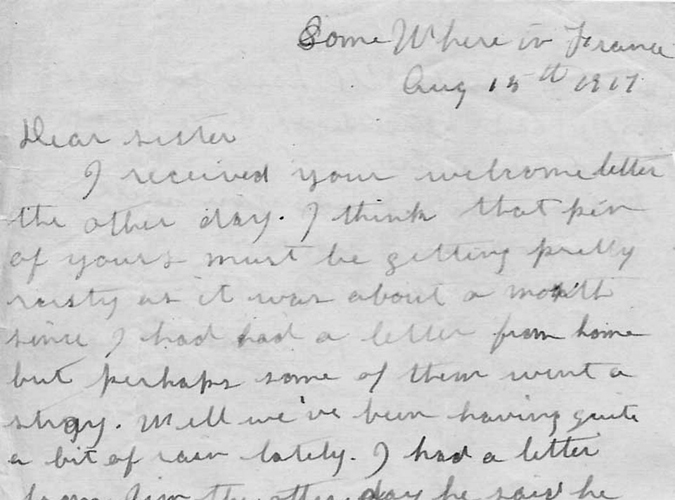 Some Where in France
Aug 15th 1917
Dear sister
I received your welcome letter
the other day. I think that pen
of yours must be getting pretty
rusty as it was about a month
since I had had a letter from home
but perhaps some of them went a
stray. Well we've been having quite
a bit of rain lately. I had a letter
from Jim the other day he said he